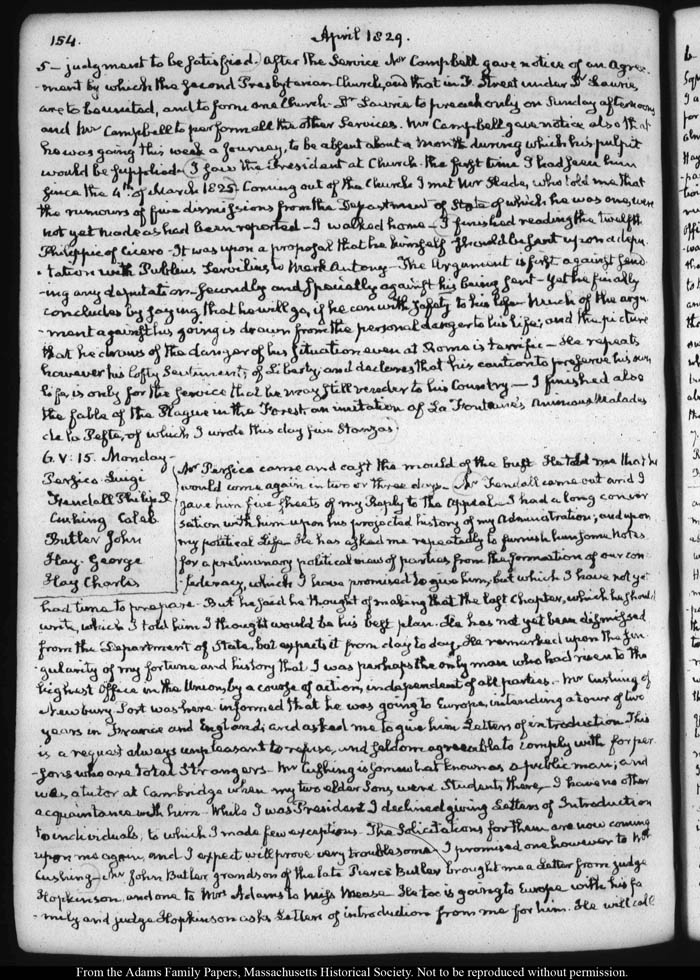 154.
April 1829.
5 — judgment to be satisfied. After the Service Mr Campbell gave notice of an Agree-
-ment by which the second Presbyterian Church, and that in F. Street under Dr Laurie,
are to be united, and to form one Church. Dr Laurie to preach only on Sunday afternoons
and Mr Campbell to perform all the other Services. Mr Campbell gave notice also that
he was going this week a Journey, to be absent about a Month during which his pulpit
would be supplied. I saw the President at Church the first time I had seen him
since the 4th of March 1825. Coming out of the Church I met Mr Slade, who told me that
the rumours of five dismissions from the Department of State of which he was one, were
not yet made as had been reported — I walked home — I finished reading the twelfth
Philippic of Cicero — It was upon a proposal that he himself should be sent upon a depu-
-tation with Publius Servilius to Mark Antony — The Argument is first against send-
-ing any deputation — secondly and specially against his being sent — Yet he finally
concludes by saying that he will go, if he can with safety to his life. Much of the argu-
-ment against his going is drawn from the personal danger to his life; and the picture
that he draws of the danger of his situation even at Rome is terrific — He repeats
however his lofty Sentiments of Liberty and declares that his caution to preserve his own
life, is only for the service that he may still render to his Country — I finished also
the fable of the Plague in the Forest, an imitation of La Fontaine's Animaux Malades
de la Peste, of which I wrote this day five Stanzas.
6. V: 15. Monday —
Persico. Luigi
Fendall Philip R
Cushing Caleb
Butler John
Hay. George
Hay Charles
Mr Persico came and cast the mould of the bust. He told me that he
would come again in two or three days. Mr Fendall came out and I
gave him five sheets of my Reply to the Appeal — I had a long conver
sation with him upon his projected history of my Administration; and upon
my political Life. He has asked me repeatedly to furnish him some Notes
for a preliminary political view of parties, from the formation of our con-
-federacy, which I have promised to give him, but which I have not yet
had time to prepare. But he said he thought of making that the last Chapter, which he should
write, which I told him I thought would be his best plan. He has not yet been dismissed
from the Department of State, but expects it from day to day. He remarked upon the sin-
-gularity of my fortune and history that I was perhaps the only man who had risen to the
highest Office in the Union, by a course of action, independent of all parties. Mr Cushing of
Newbury Port was here. informed that he was going to Europe, intending a tour of two
years in France and England; and asked me to give him Letters of introduction. This
is a request always unpleasant to refuse, and seldom agreeable to comply with for per-
-sons who are total Strangers. Mr Cushing is somewhat known as a public man; and
was a tutor at Cambridge when my two elder Sons, were Students there — I have no other
acquaintance with him. While I was President I declined giving Letters of Introduction
to individuals; to which I made few exceptions. The Solicitations for them are now coming
upon me again, and I expect will prove very troublesome. I promised one however to Mr
Cushing — Mr John Butler grandson of the late Pierce Butler brought me a Letter from judge
Hopkinson, and one to Mrs Adams to Miss Mease. He too is going to Europe with his fa
-mily and judge Hopkinson asks Letters of introduction from me for him. He will call
From the Adams Family Papers, Massachusetts Historical Society. Not to be reproduced without permission.